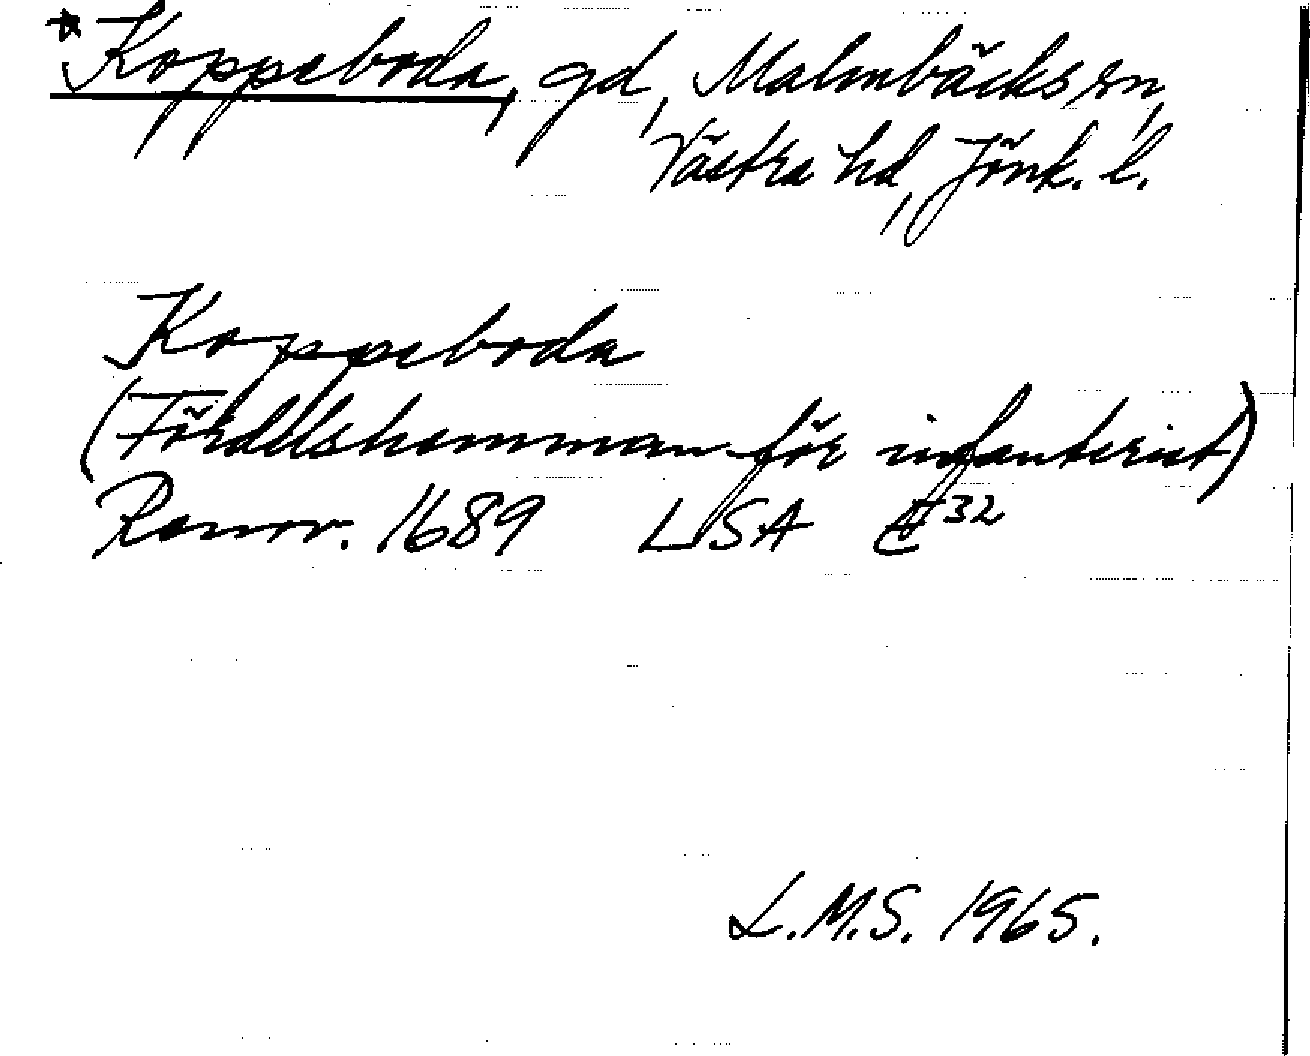 *Koppeboda, gd, Malmbäcks sn,
Västra hd, Jönk. l.
Koppeboda
(Fördelshemman för infanterist)
Renov. 1689 LSA E 32
L.M.S. 1965.